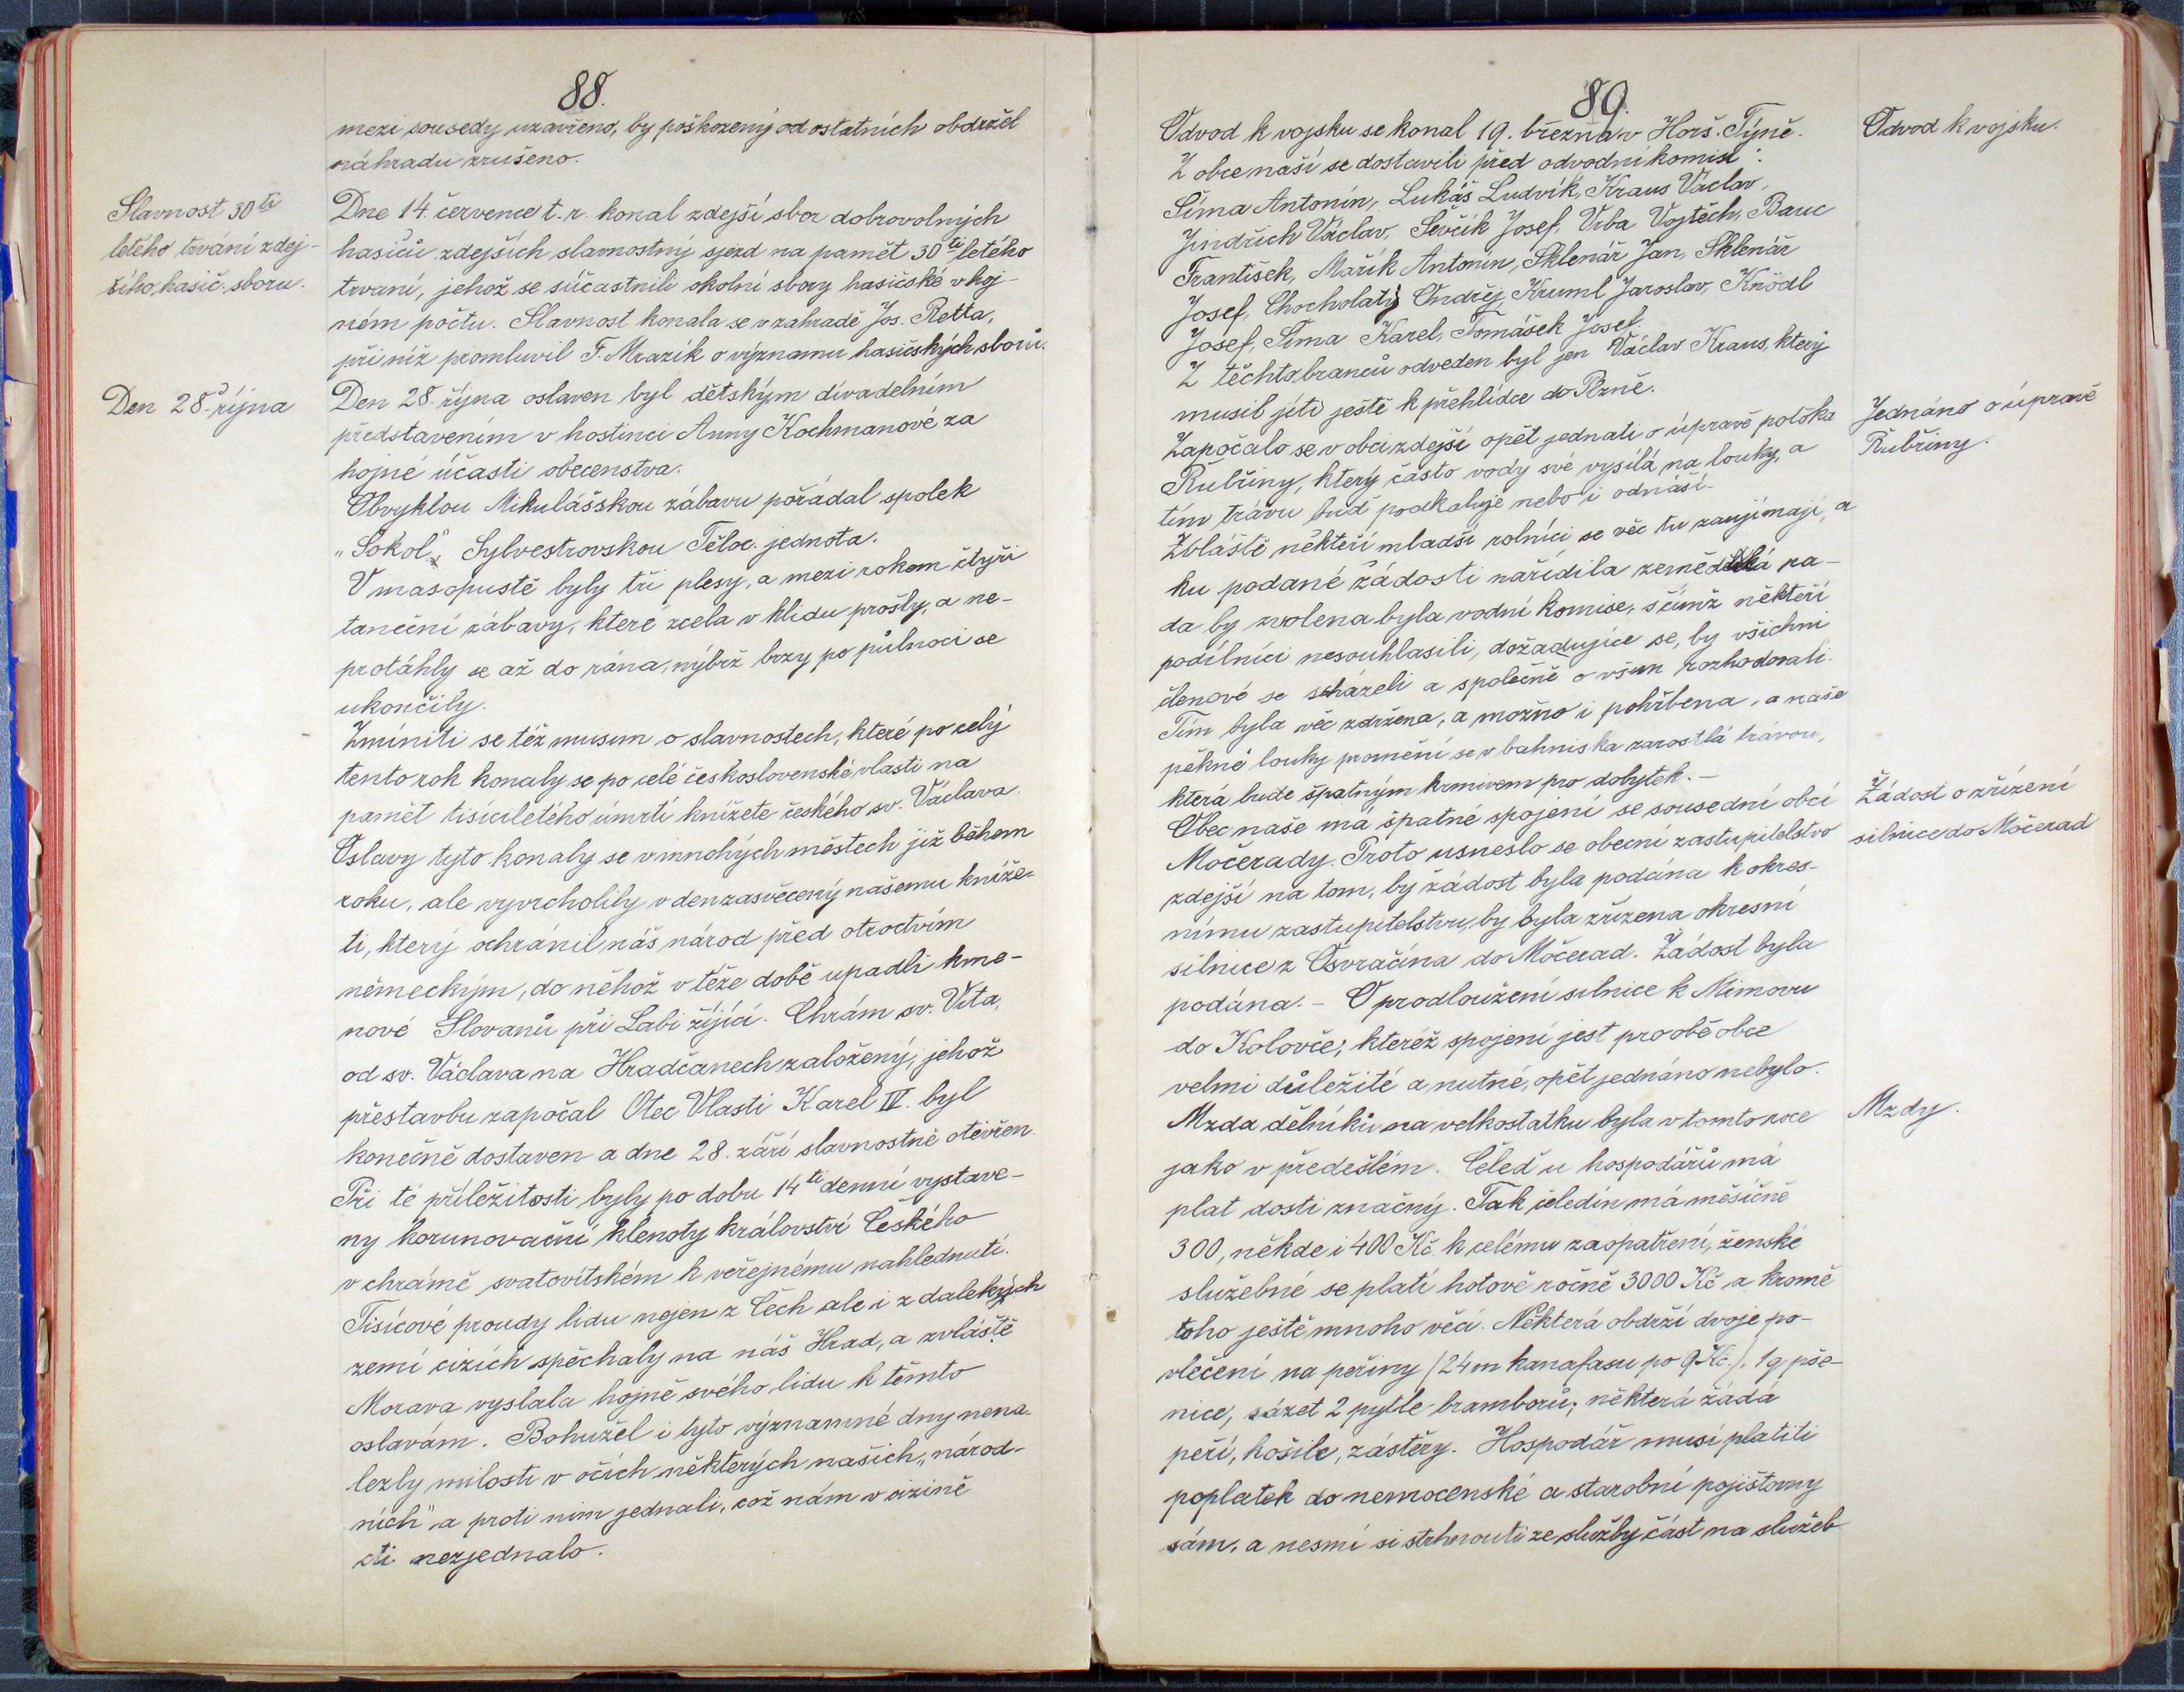 88.
mezi sousedy uzavřeno, by poškozený od ostatních obdržel
náhradu zrušeno.
Slavnost 30ti
letého trvání zdej-
šího hasič. sboru.
Dne 14. července t. r. konal zdejší sbor dobrovolných
hasičů zdejších slavnostný sjezd na pamět 30ti letého
trvaní, jehož se súčastnili okolní sbory hasičské v hoj-
ném počtu. Slavnost konala se v zahradě Jos. Retta,
při níž promluvil F. Mrazík o významu hasičských sborů.
Den 28. října
Den 28. října oslaven byl dětským divadelním
představením v hostinci Anny Kochmanové za
hojné účasti obecenstva.
Obvyklou Mikulášskou zábavu pořádal spolek
„Sokol", Sylvestrovskou Těloc. jednota.
V masopustě byly tři plesy, a mezi rokem čtyři
taneční zábavy, které zcela v klidu prošly, a ne-
protáhly se až do rána, nýbrž brzy po půlnoci se
ukončily.
Zmíniti se též musím o slavnostech, které po celý
tento rok konaly se po celé československé vlasti na
pamět tisíciletého úmrtí knížete českého sv. Václava.
Oslavy tyto konaly se v mnohých městech již během
roku, ale vyvrcholily v den zasvěcený našemu kníže-
ti, který ochránil náš národ před otroctvím
německým, do něhož v téže době upadli kme-
nové Slovanů při Labi žijící. Chrám sv. Víta,
od sv. Václava na Hradčanech založený, jehož
přestavbu započal Otec Vlasti Karel IV. byl
konečně dostaven a dne 28. září slavnostně otevřen.
Při té příležitosti byly po dobu 14ti denní vystave-
ny korunovační klenoty království Českého
v chrámě svatovítském k veřejnému nahlednutí.
Tisícové proudy lidu nejen z Čech ale i z dalekých
zemí cizích spěchaly na náš Hrad, a zvláště
Morava vyslala hojně svého lidu k těmto
oslavám. Bohužel i tyto významné dny nena-
lezly milosti v očích některých našich „národ-
ních" a proti nim jednali, což nám v cizině
cti nezjednalo.
89.
Odvod k vojsku se konal 19. března v Horš. Týně.
Odvod k vojsku.
Z obce naší se dostavili před odvodní komisi:
Šíma Antonín, Lukáš Ludvík, Kraus Václav,
Jindřich Václav, Ševčík Josef, Vrba Vojtěch, Bauc
František, Mařík Antonín, Sklenář Jan, Sklenář
Josef, Chocholatý Ondřej, Kruml Jaroslav, Knödl
Josef, Šíma Karel, Tomášek Josef.
Z těchto branců odveden byl jen Václav Kraus, který
musil jíti ještě k přehlídce do Plzně.
Započalo se v obci zdejší opět jednati o úpravě potoka
Jednáno o úpravě
Řubřiny.
Řubřiny, který často vody své vysílá na louky, a
tím trávu buď podkaluje nebo i odnáší.
Zvláště někteří mladší rolníci se věc tu zaujímají, a
ku podané žádosti nařídila zemědělská ra-
da by zvolena byla vodní komise, s čímž někteří
podílníci nesouhlasili, dožadujíce se, by všichni
členové se scházeli a společně o všem rozhodovali.
Tím byla věc zdržena, a možno i pohřbena, a naše
pěkné louky promění se v bahniska zarostlá trávou,
která bude špatným krmivem pro dobytek. -
Obec naše má špatné spojení se sousední obcí
Žádost o zřízení
silnice do Močerad
Močerady. Proto usneslo se obecní zastupitelstvo
zdejší na tom, by žádost byla podána k okres-
nímu zastupitelstvu, by byla zřízena okresní
silnice z Osvračína do Močerad. Žádost byla
podána. - O prodloužení silnice k Mimovu
do Kolovče, kteréž spojení jest pro obě obce
velmi důležité a nutné, opět jednáno nebylo.
Mzda dělníků na velkostatku byla v tomto roce
Mzdy.
jako v předešlém. Čeleď u hospodářů má
plat dosti značný. Tak čeledín má měsíčně
300, někde i 400 Kč k celému zaopatření, ženské
služebné se platí hotově ročně 3000 Kč a kromě
toho ještě mnoho věcí. Některá obdrží dvoje po-
vlečení na peřiny (24 m kanafasu po 9 Kč.). 1 q pše-
nice, sázet 2 pytle bramborů; některá žádá
peří, košile, zástěry. Hospodář musí platiti
poplatek do nemocenské a starobní pojišťovny
sám, a nesmí si strhnouti ze služby část na služeb-